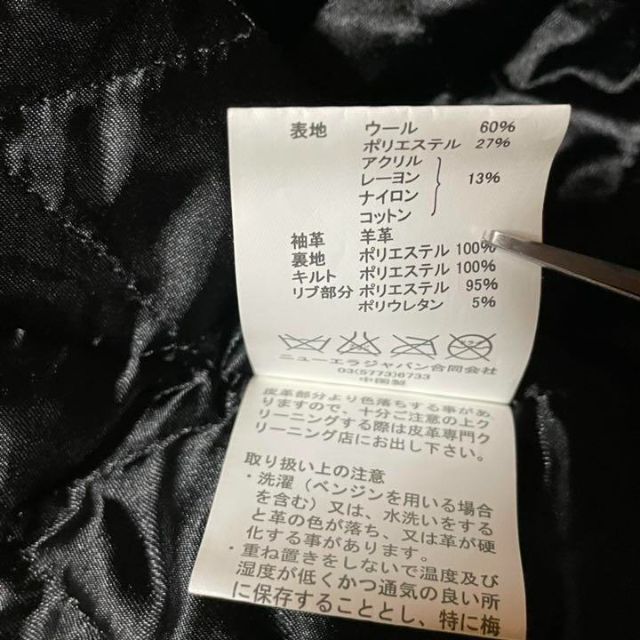 表地 ウール 60%
ポリエステル 27%
アクリル
レーヨン 13%
ナイロン
コットン
袖革 羊革
裏地 ポリエステル 100%
キルト ポリエステル 100%
リブ部分 ポリエステル 95%
ポリウレタン 5%
ニューエラジャパン合同会社
03(5773)6733
中国製
皮革部分より色落ちする事があ
りますので、十分ご注意の上ク
リーニングする際は皮革専門ク
リーニング店にお出し下さい。
取り扱い上の注意
・洗濯(ベンジンを用いる場合
を含む)又は、水洗いをする
と革の色が落ち、又は革が硬
化する事があります。
・重ね置きをしないで温度及び
湿度が低くかつ通気の良い所
に保存することとし、特に梅